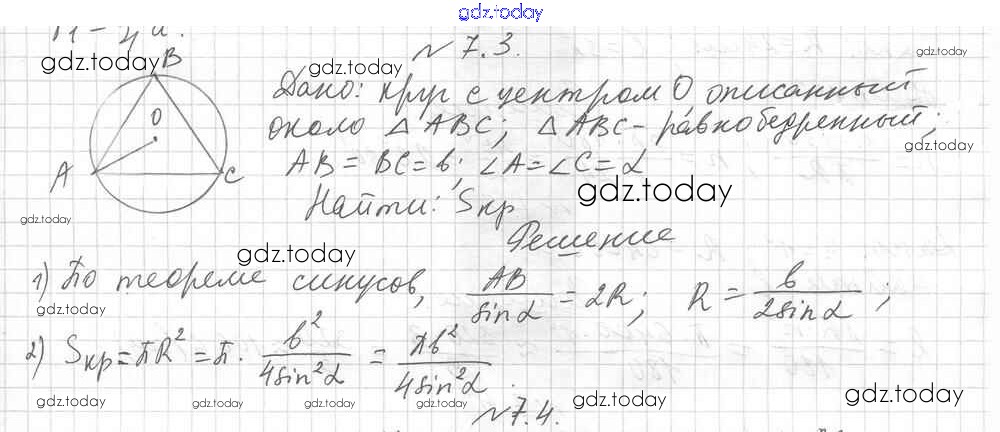 gdz.today
N 7.3.
gdz.today
B
gdz.today
Дано: круг с центром O, описанный
O
около △ ABC; △ ABC - равнобедренный;
gdz.today
A
C
AB = BC = b; ∠A = ∠C = α
gdz.today
gdz.today
Найти: Sкр
gdz.today
Решение
1) По теореме синусов, AB/sinα = 2R; R = b/2sinα ;
gdz.today
gdz.today
2) Sкр = πR² = π · b²/4sin²α = πb²/4sin²α .
gdz.today
gdz.today
gdz.today
gdz.today
gdz.today
gdz.today
gdz.today
N 7.4.